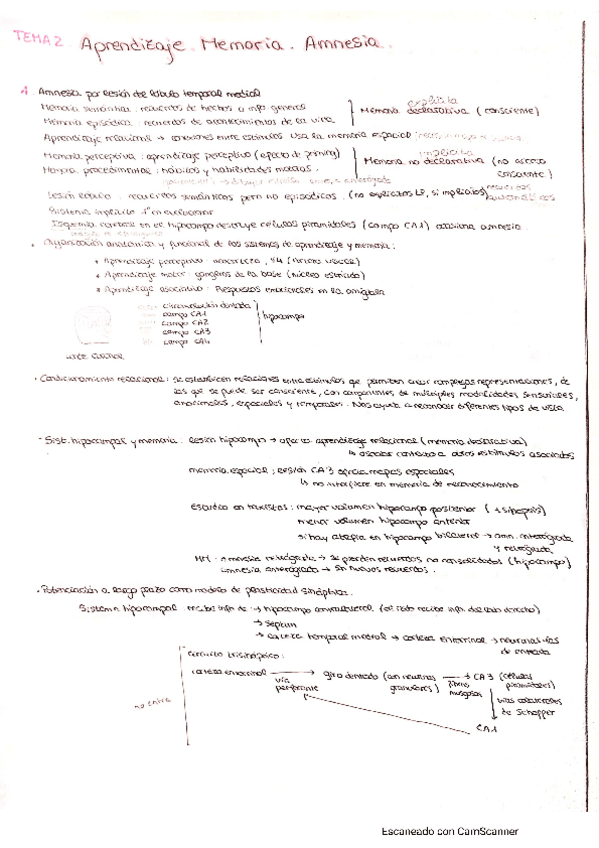 TEMA 2 Aprendizaje. Memoria. Amnesia.
1. Amnesia por lesión del lóbulo temporal medial
Memoria semántica: recuerdos de hechos o info general
Memoria episódica: recuerdos de acontecimientos de la vida
explícita
Memoria declarativa (consciente)
Aprendizaje relacional → conexiones entre estímulos. Usa la memoria espacial
Memoria perceptiva: aprendizaje perceptivo (efecto de priming)
Memoria procedimental: hábitos y habilidades motoras.
implícita
Memoria no declarativa (no acceso consciente)
Lesión lóbulo: recuerdos semánticos pero no episódicos. (no explícitos LP, si implícitos) recuerdos automáticos
Sistema implícito 1º en evolucionar
Isquemia cerebral en el hipocampo destruye células piramidales (campo CA1) ocasiona amnesia
· Organización anatómica y funcional de los sistemas de aprendizaje y memoria:
• Aprendizaje perceptivo:
• Aprendizaje motor: ganglios de la base (núcleo estriado)
• Aprendizaje asociativo: Respuestas emocionales en la amígdala
circunvolución dentada
campo CA1
campo CA2
campo CA3
campo CA4
hipocampo
· Condicionamiento relacional: se establecen relaciones entre estímulos que permiten crear complejas representaciones, de
las que se puede ser consciente, con componentes de múltiples modalidades sensoriales,
emocionales, espaciales y temporales. Nos ayuda a reconocer diferentes tipos de vista
· Sist. hipocampal y memoria. Lesión hipocampo → afecta aprendizaje relacional (memoria declarativa)
↳ asociar contexto a otros estímulos asociados
memoria espacial; lesión CA3 afecta mapas espaciales
↳ no interfiere en memoria de reconocimiento
estudio en taxistas: mayor volumen hipocampo posterior (↑ sinapsis)
menor volumen hipocampo anterior
si hay atrofia en hipocampo bilateral → amn. anterógrada
y retrógrada
HM: amnesia retrógrada → se pierden recuerdos no consolidados (hipocampo)
amnesia anterógrada → sin nuevos recuerdos.
· Potenciación a largo plazo como modelo de plasticidad sináptica.
Sistema hipocampal recibe info de → hipocampo contralateral (el lado recibe info. del lado derecho)
→ septum
→ corteza temporal medial → corteza entorrinal → neuronas
de entrada
circuito trisináptico:
corteza entorrinal → giro dentado (con neuronas granulares) → CA3 (células piramidales)
vía perforante
fibras musgosas
vías colaterales de Schaffer
CA1
no entra
Escaneado con CamScanner